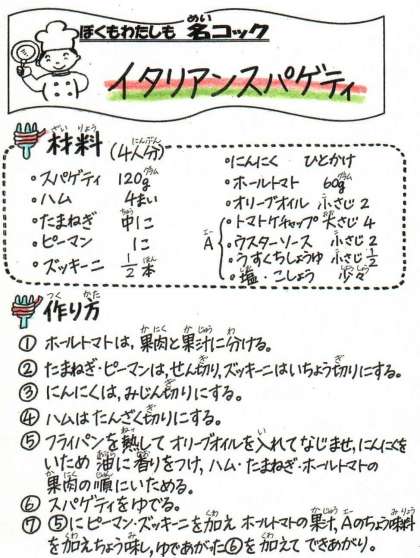 ぼくもわたしも 名コック
イタリアンスパゲティ
材料 (4人分)
・スパゲティ 120g
・ハム 4まい
・たまねぎ 中1こ
・ピーマン 1こ
・ズッキーニ 1/2本
・にんにく ひとかけ
・ホールトマト 60g
・オリーブオイル 小さじ2
A
・トマトケチャップ 大さじ4
・ウスターソース 小さじ2
・うすくちしょうゆ 小さじ1/2
・塩・こしょう 少々
作り方
① ホールトマトは,果肉と果汁に分ける。
② たまねぎ・ピーマンは,せん切り,ズッキーニはいちょう切りにする。
③ にんにくは,みじん切りにする。
④ ハムはたんざく切りにする。
⑤ フライパンを熱してオリーブオイルを入れてなじませ,にんにくを
いため 油に香りをつけ,ハム・たまねぎ・ホールトマトの
果肉の順にいためる。
⑥ スパゲティをゆでる。
⑦ ⑤にピーマン・ズッキーニを加え ホールトマトの果汁,Aのちょう味料
を加えちょう味し,ゆであがった⑥を加えてできあがり。